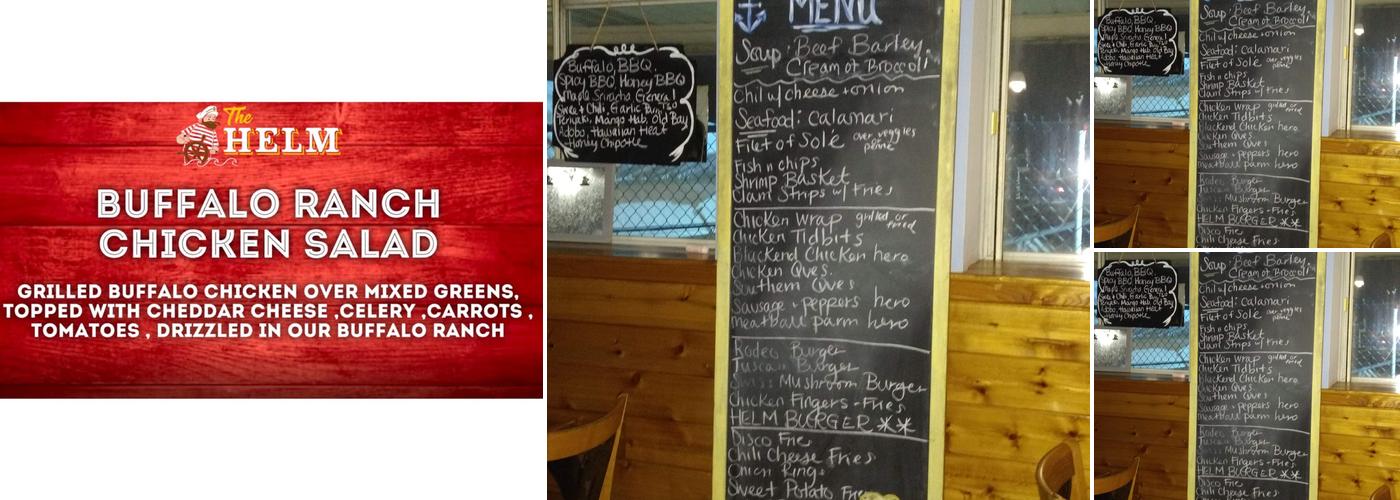 The
HELM
BUFFALO RANCH
CHICKEN SALAD
GRILLED BUFFALO CHICKEN OVER MIXED GREENS,
TOPPED WITH CHEDDAR CHEESE ,CELERY ,CARROTS ,
TOMATOES , DRIZZLED IN OUR BUFFALO RANCH
Buffalo, BBQ.
Spicy BBQ Honey BBQ
Maple Sriracha General
Sweet + Chili, Garlic
Teriyaki, Mango Hab, Old Bay
Adobo, Hawaiian Heat
Honey Chipotle
MENU
Soup: Beef Barley,
Cream of Broccoli
Chil w/ cheese + onion
Seafood: Calamari
Filet of Sole over veggies
Fish n chips
Shrimp Basket
Clam Strips w/ Fries
Chicken Wrap grilled or fried
Chicken Tidbits
Blackend Chicken hero
Chicken Ques.
Southern Ques
Sausage + peppers hero
meatball parm hero
Rodeo Burger
Tuscan Burger
Swiss Mushroom Burger
Chicken Fingers - Fries
HELM BURGER **
Disco Frie
Chili Cheese Fries
Onion Rings
Sweet Potato Fries
Buffalo, BBQ.
Spicy BBQ Honey BBQ
Maple Sriracha General
Sweet + Chili, Garlic
Teriyaki, Mango Hab, Old Bay
Adobo, Hawaiian Heat
Honey Chipotle
Soup: Beef Barley,
Cream of Broccoli
Chil w/ cheese + onion
Seafood: Calamari
Filet of Sole over veggies
Fish n chips
Shrimp Basket
Clam Strips w/ Fries
Chicken Wrap grilled or fried
Chicken Tidbits
Blackend Chicken hero
Chicken Ques.
Southern Ques
Sausage + peppers hero
meatball parm hero
Rodeo Burger
Tuscan Burger
Swiss Mushroom Burger
Chicken Fingers - Fries
HELM BURGER **
Disco Frie
Chili Cheese Fries
Buffalo, BBQ.
Spicy BBQ Honey BBQ
Maple Sriracha General
Sweet + Chili, Garlic
Teriyaki, Mango Hab, Old Bay
Adobo, Hawaiian Heat
Honey Chipotle
Soup: Beef Barley,
Cream of Broccoli
Chil w/ cheese + onion
Seafood: Calamari
Filet of Sole over veggies
Fish n chips
Shrimp Basket
Clam Strips w/ Fries
Chicken Wrap grilled or fried
Chicken Tidbits
Blackend Chicken hero
Chicken Ques.
Southern Ques
Sausage + peppers hero
meatball parm hero
Rodeo Burger
Tuscan Burger
Swiss Mushroom Burger
Chicken Fingers - Fries
HELM BURGER **
Disco Frie
Chili Cheese Fries